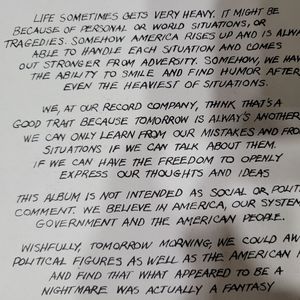 LIFE SOMETIMES GETS VERY HEAVY. IT MIGHT BE
BECAUSE OF PERSONAL OR WORLD SITUATIONS, OR
TRAGEDIES. SOMEHOW AMERICA RISES UP AND IS ALWA
ABLE TO HANDLE EACH SITUATION AND COMES
OUT STRONGER FROM ADVERSITY. SOMEHOW, WE HAV
THE ABILITY TO SMILE AND FIND HUMOR AFTER
EVEN THE HEAVIEST OF SITUATIONS.
WE, AT OUR RECORD COMPANY, THINK THAT'S A
GOOD TRAIT BECAUSE TOMORROW IS ALWAY'S ANOTHER
WE CAN ONLY LEARN FROM OUR MISTAKES AND FRO
SITUATIONS IF WE CAN TALK ABOUT THEM.
IF WE CAN HAVE THE FREEDOM TO OPENLY
EXPRESS OUR THOUGHTS AND IDEAS
THIS ALBUM IS NOT INTENDED AS SOCIAL OR POLIT
COMMENT. WE BELIEVE IN AMERICA, OUR SYSTEM
GOVERNMENT AND THE AMERICAN PEOPLE.
WISHFULLY, TOMORROW MORNING, WE COULD AW
POLITICAL FIGURES AS WELL AS THE AMERICAN
AND FIND THAT WHAT APPEARED TO BE A
NIGHTMARE WAS ACTUALLY A FANTASY